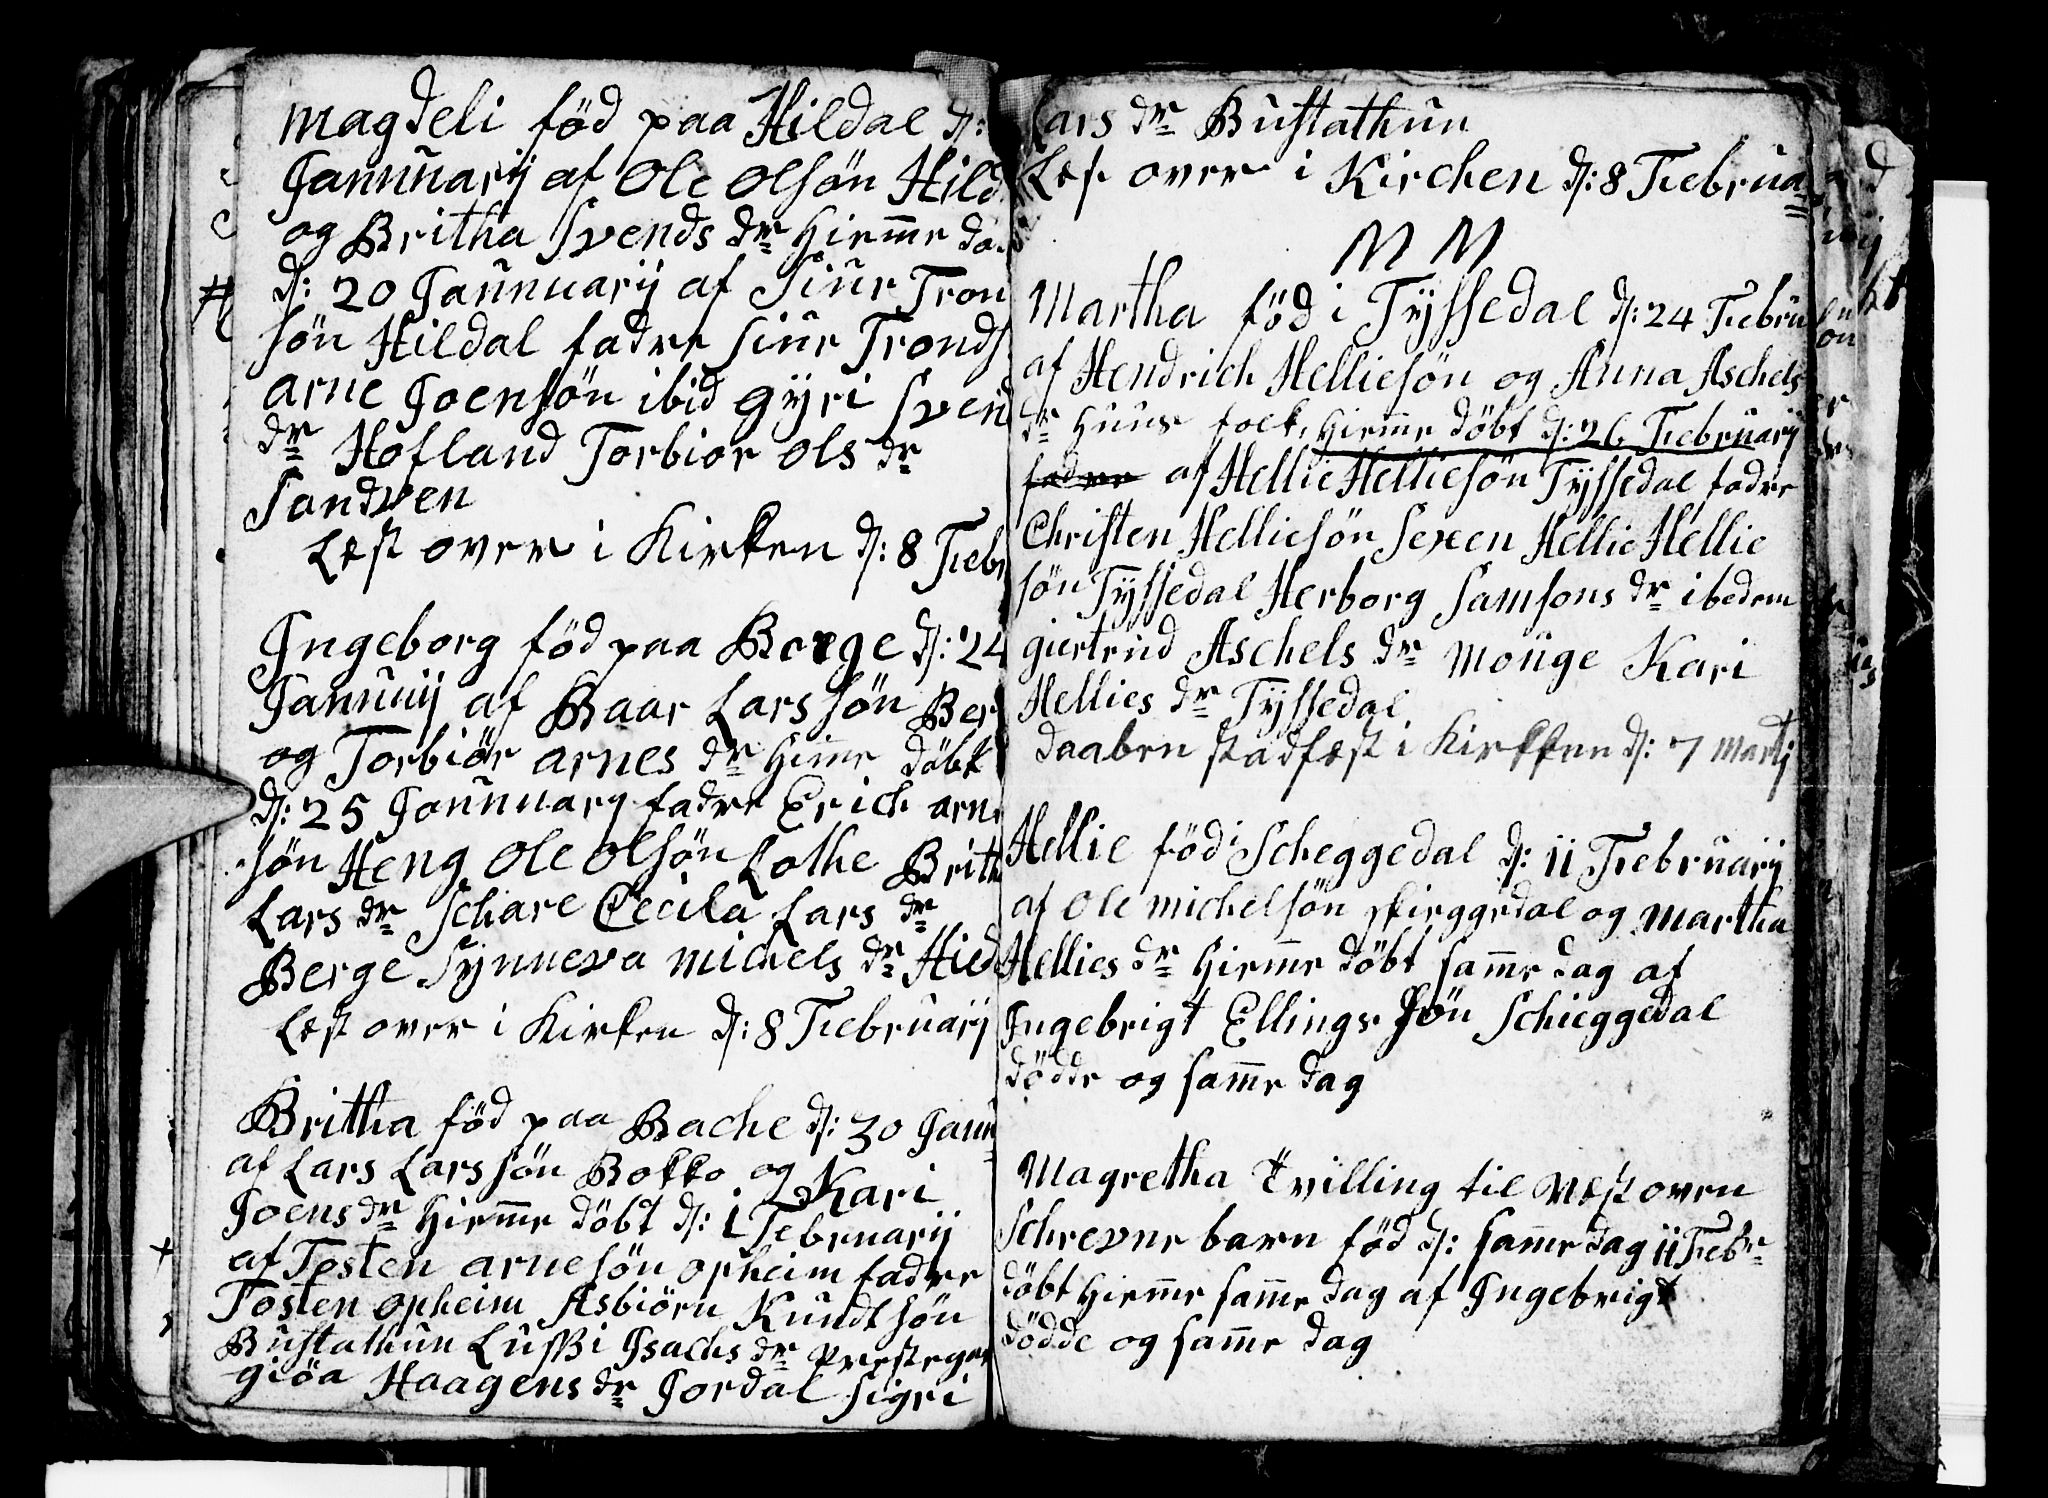 Magdeli föd paa Hildal d:
Januuarij af Ole Olsön Hild
og Britha Svends dr hiemme dö
d: 20 Jaunuarij af Siur Tron
sön Hildal fadre Siur Tronds
arne Joensön ibid gÿri Svend
dr Hofland Torbior Ols dr
Sandven
Lest over i Kirken d: 8 Febr
Ingeborg föd paa Berge d: 24
Januuij af Baar Lars sön Ber
og Torbiör arnes dr hieme döbt
d: 25 Jaunuary fadre Erich arne
sön Heng Ole Olsön Lothe Brith
Lars dr Schare Cecila Lars dr
Berge Synneva Michels dr Hied
Lest over i Kirken d: 8 Februarij
Britha föd paa Bache d: 30 Janu
af Lars Lars sön Bokko og Kari
Joens dr hiemme döbt d: 1 Februarij
af Tosten arnesön opheim fadre
Tosten opheim Asbiörn Kundt sön
Bustathun Lussi Isachs dr Prestegar
giöa Haagens dr Jordal Sigri
Lars dr Bustathun
Lest over i Kirchen d: 8 Februa
M M
Martha föd i Tÿssedal d: 24 Febru
af Hendrich Helliesön og Anna Aschels
dr huus folk, hiemme döbt d: 26 Februarij
fadre af Hellie Helliesön Tÿssedal fadre
Christen Helliesön Sexeen Hellie Hellie
sön Tÿssedal Herborg Samsons dr ibedem
giertrud Aschels dr Mouge Kari
Hellies dr Tÿssedal
daaben stadfest i Kirkken d: 7 Martij
Hellie föd i Scheggedal d: 11 Februarij
af Ole Michelsön skieggedal og Martha
Hellies dr hiemme döbt samme dag af
Ingebrigt Ellings sön Schieggedal
dödde og samme dag
Magretha tvilling til nest oven
Schrevne barn föd d: samme dag 11 Febr
döbt hiemme samme dag af Ingebrigt
dödde og samme dag